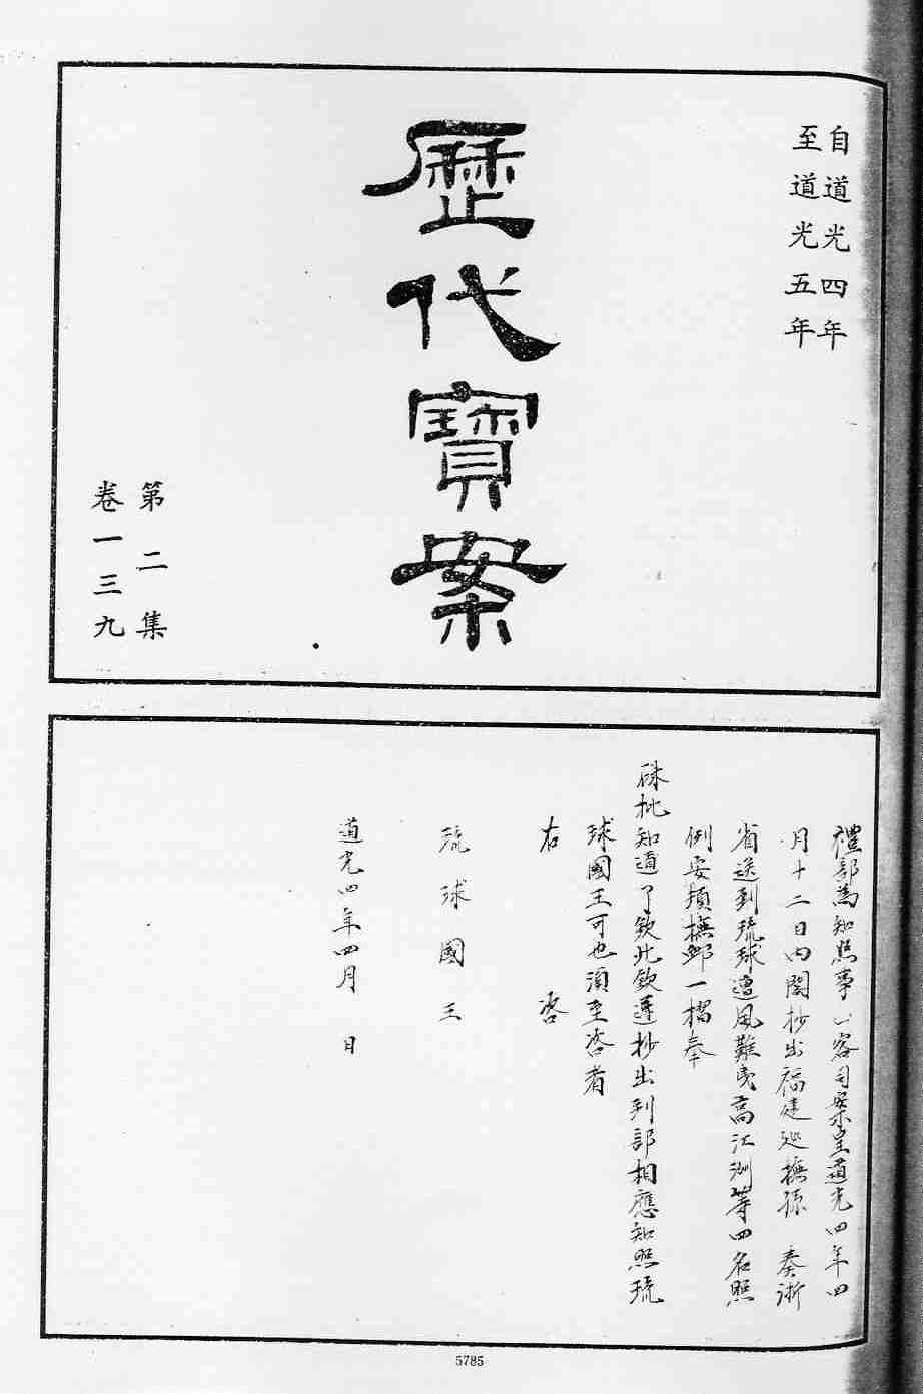 自道光四年
至道光五年
歷代寶案
第二集
卷一三九
禮部為知照事主客司案呈道光四年四
月十二日內閣抄出福建巡撫孫 奏浙
省送到琉球遭風難民高江洲等四名照
例安頓撫卹一摺奉
硃批知道了欽此欽遵抄出到部相應知照琉
球國王可也須至咨者
右 咨
琉球國王
道光四年四月 日
5785